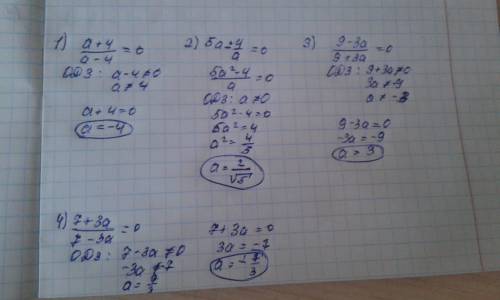 1) (a+4)/(a-4) = 0
ОДЗ: a-4≠0
a≠4
a+4=0
a=-4
2) 5a±4/a = 0
(5a²-4)/a = 0
ОДЗ: a≠0
5a²-4=0
5a²=4
a²=4/5
a=2/√5
3) (9-3a)/(9+3a) = 0
ОДЗ: 9+3a≠0
3a≠-9
a≠-3
9-3a=0
-3a=-9
a=3
4) (7+3a)/(7-3a) = 0
ОДЗ: 7-3a≠0
-3a≠-7
7+3a=0
3a=-7
a=-7/3